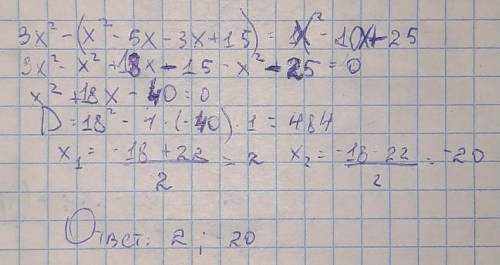 3x² - (x² - 5x - 3x + 15) = x² - 10x + 25
3x² - x² + 18x - 15 - x² - 25 = 0
x² + 18x - 40 = 0
D = 18² - 4 · (-40) · 1 = 484
x₁ = -18 + 22 / 2 = 2 x₂ = -18 - 22 / 2 = -20
Ответ: 2 ; -20